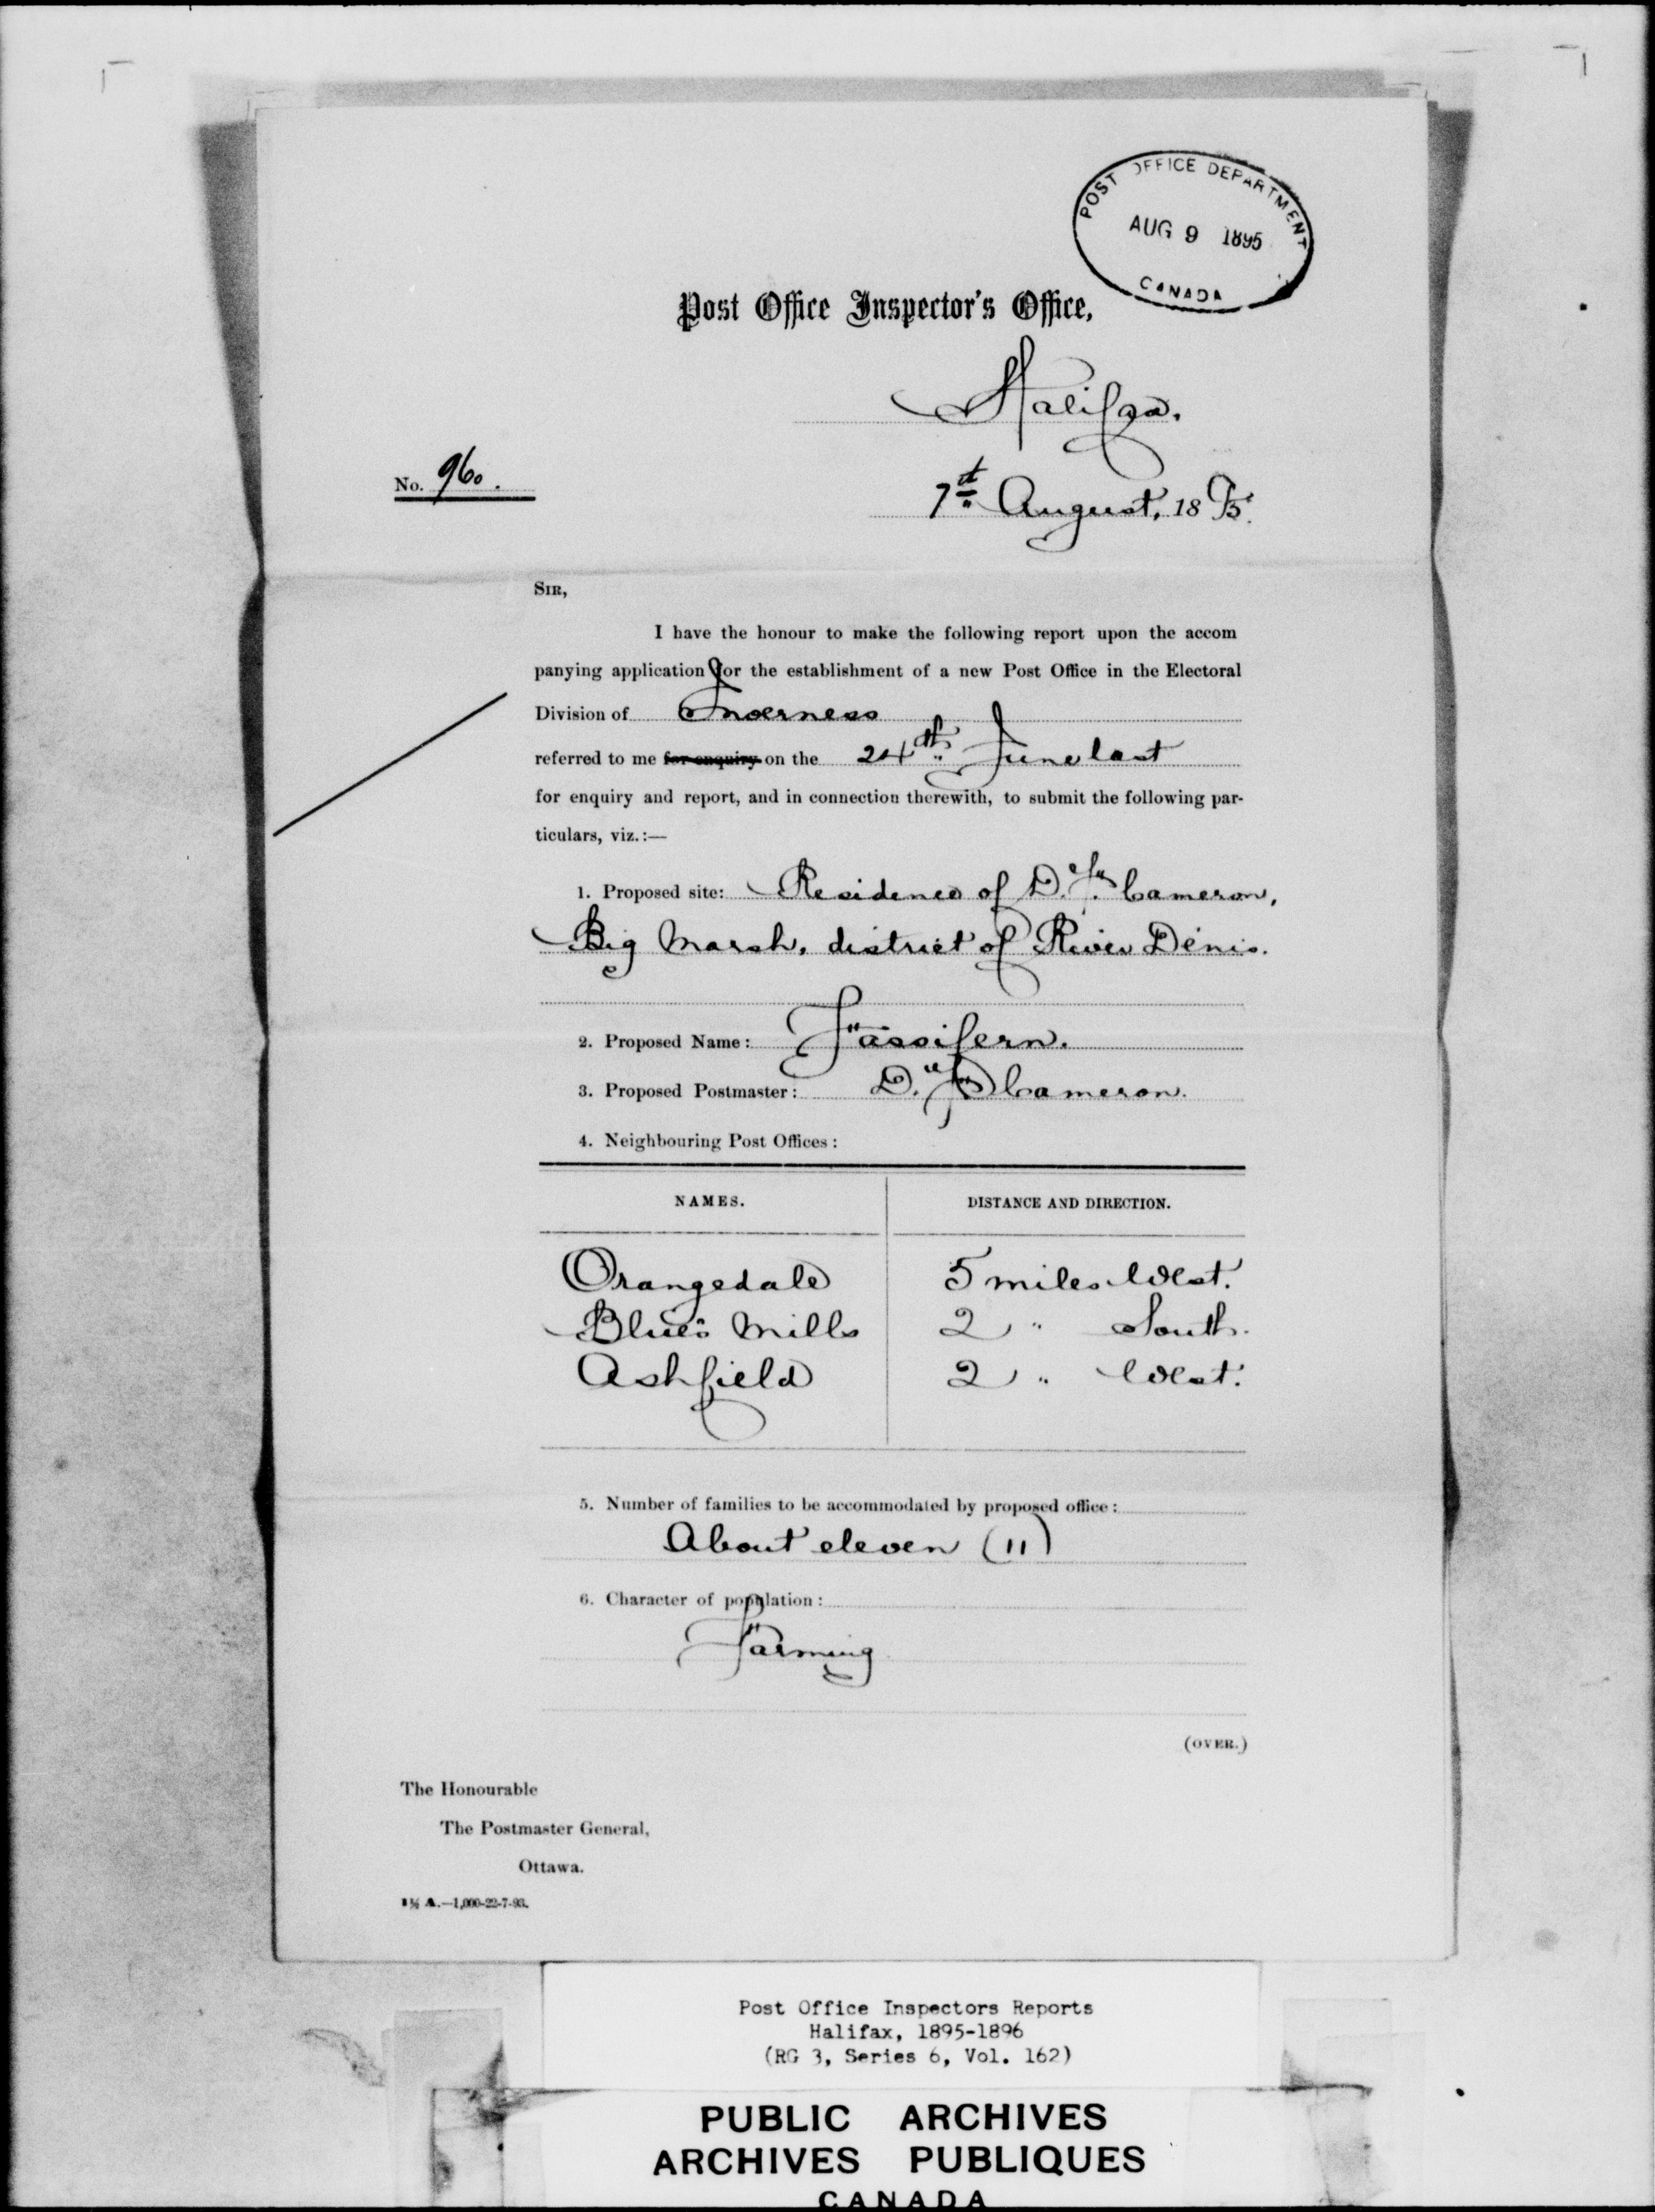 POST OFFICE DEPARTMENT
AUG 9 1895
CANADA
Post Office Inspector's Office,
Halifax.
No. 960.
7th August, 1895.
SIR,
I have the honour to make the following report upon the accom
panying application for the establishment of a new Post Office in the Electoral
Division of Inverness
referred to me for enquiry on the 24th June last
for enquiry and report, and in connection therewith, to submit the following par-
ticulars, viz.:—
1. Proposed site: Residence of D. F. Cameron,
Big Marsh, district of River Denis.
2. Proposed Name: Fassifern.
3. Proposed Postmaster: D. F. Cameron.
4. Neighbouring Post Offices:
NAMES. DISTANCE AND DIRECTION.
Orangedale 5 miles West.
Blue's Mills 2 " South.
Ashfield 2 " West.
5. Number of families to be accommodated by proposed office:
About eleven (11)
6. Character of population:
Farming
(OVER.)
The Honourable
The Postmaster General,
Ottawa.
A.—1,000-22-7-93.
Post Office Inspectors Reports
Halifax, 1895-1896
(RG 3, Series 6, Vol. 162)
PUBLIC ARCHIVES
ARCHIVES PUBLIQUES
CANADA